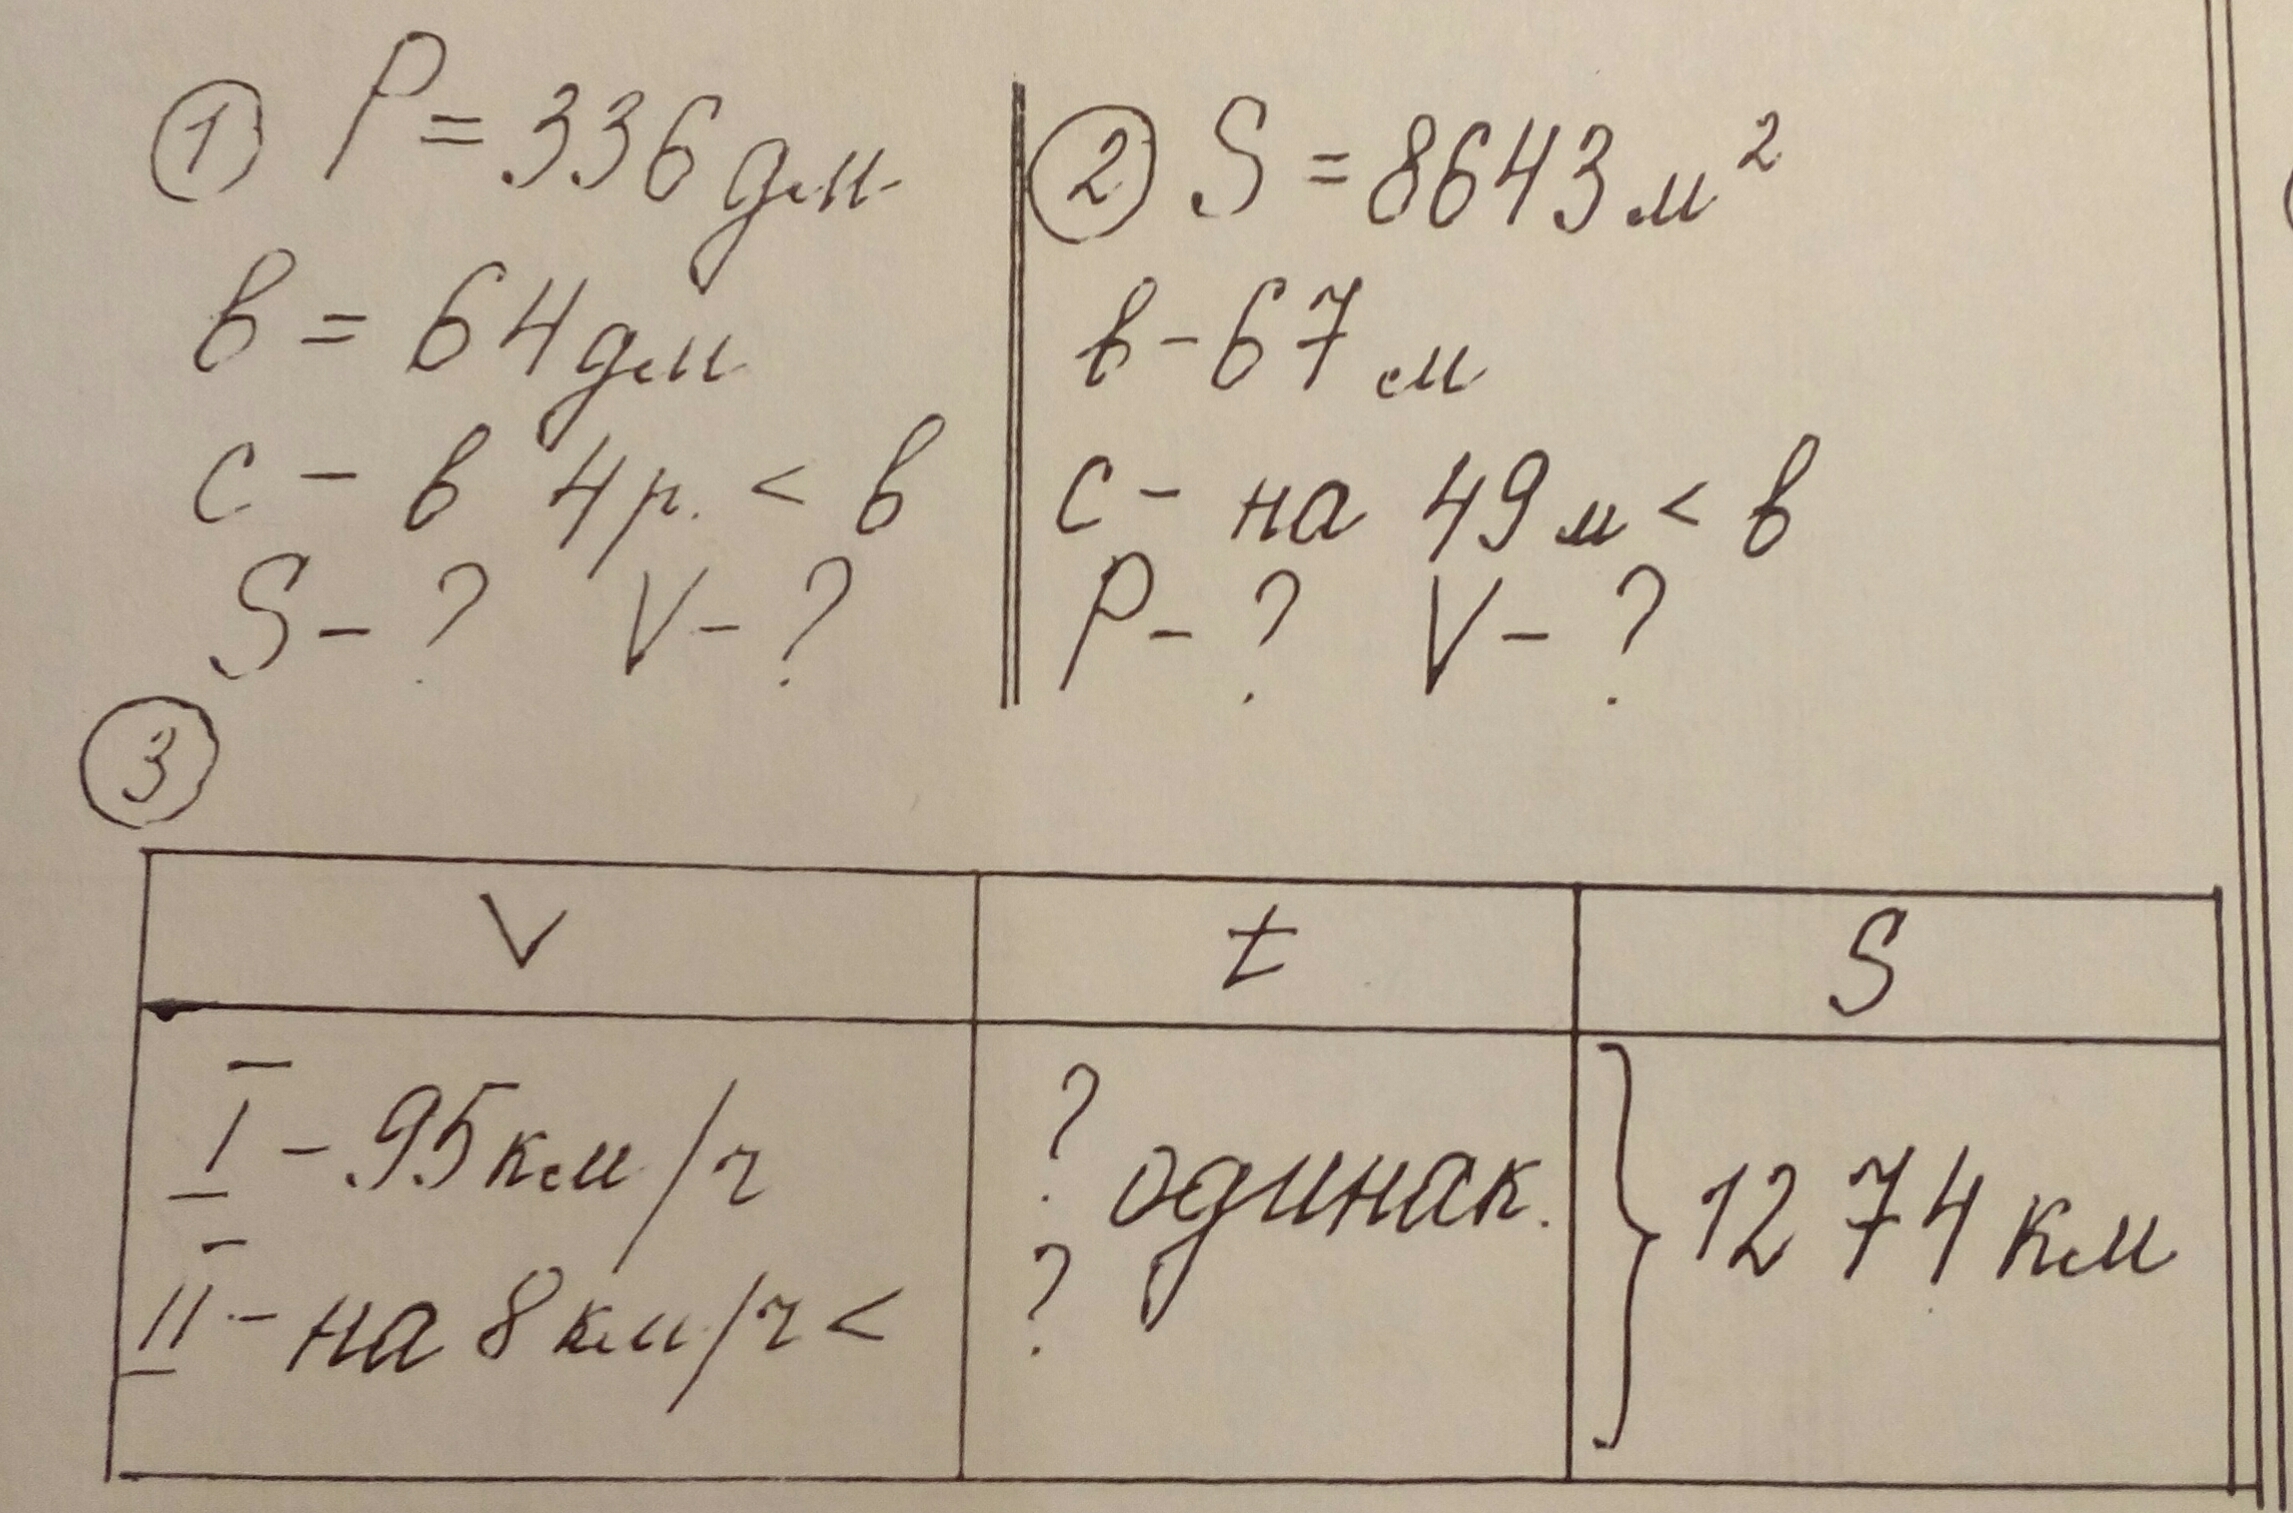 ① P = 336 дм
в = 64 дм
с – в 4 р. < в
S – ? V – ?
② S = 8643 м²
в – 67 м
с – на 49 м < в
P – ? V – ?
③
V t S
I – 95 км/ч ? одинак. } 1274 км
II – на 8 км/ч < ?